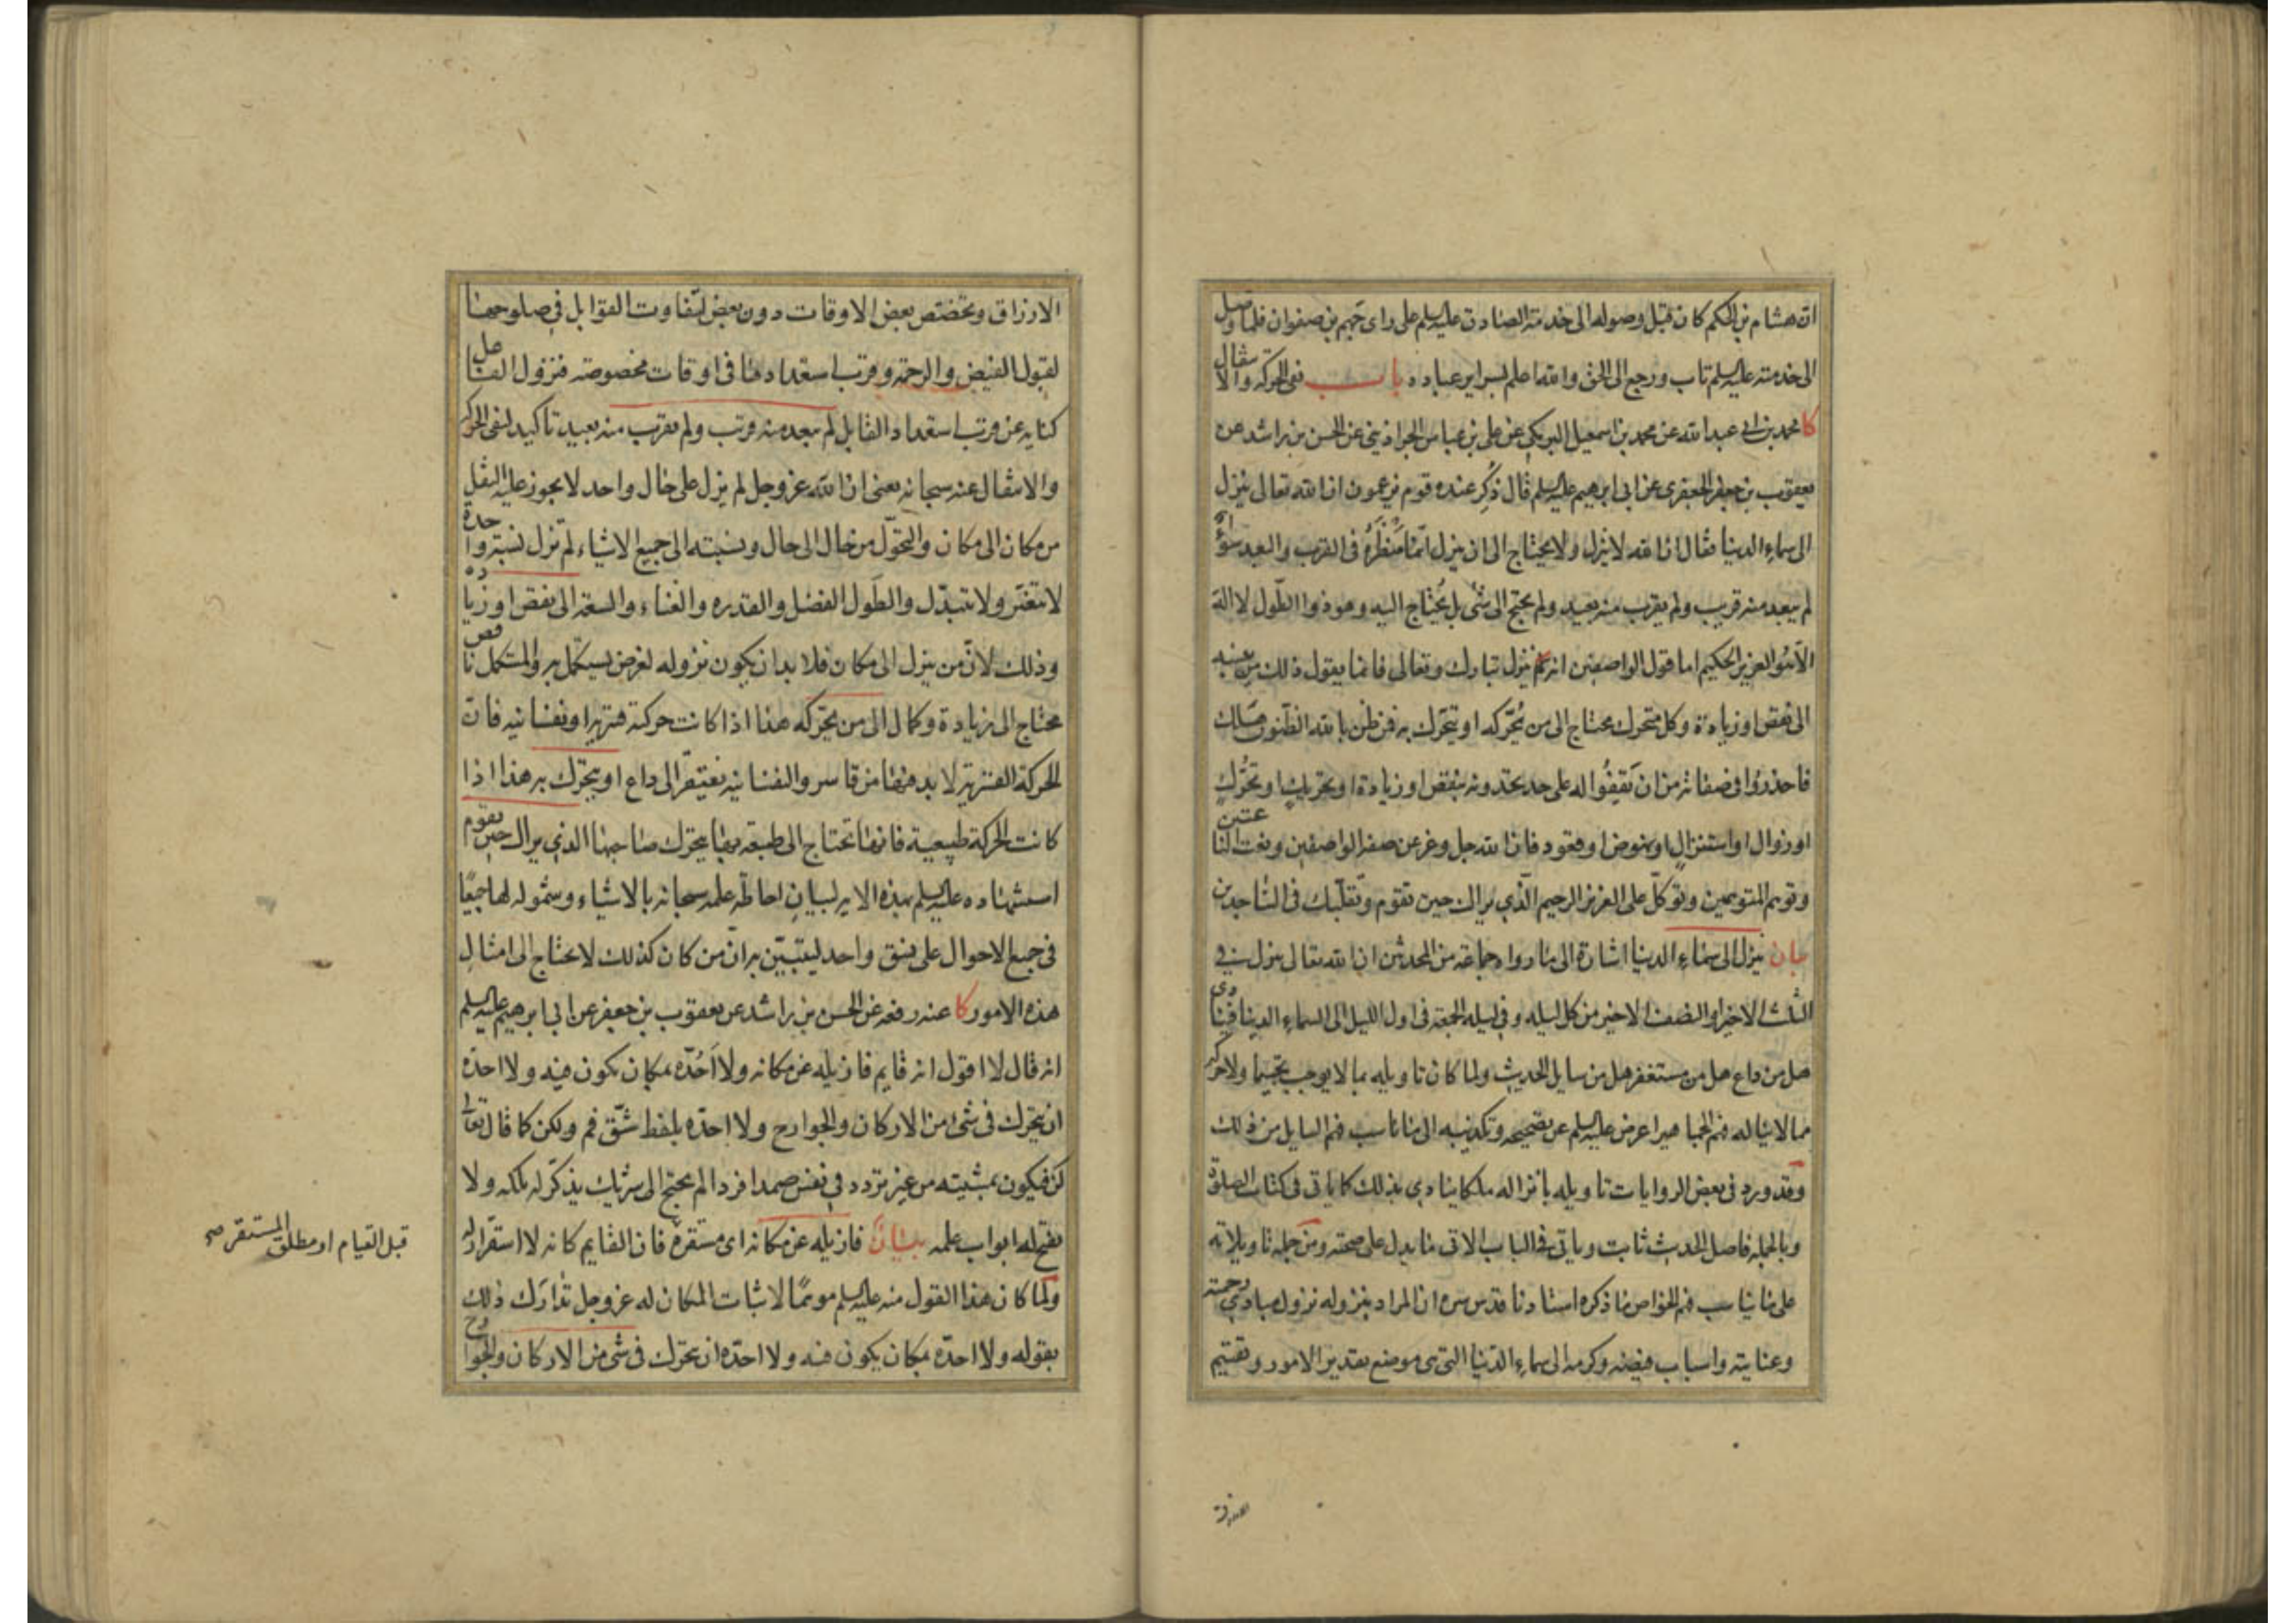 ان هشام بن الحكم كان قبل وصوله الى خدمة الصادق عليه السلم على راى جهم بن صفوان فلما وصل
الى خدمته عليه السلم تاب ورجع الى الحق والله اعلم بسراير عباده باب نفى الحركه والانتقال
كا محمد بن ابى عبد الله عن محمد بن اسمعيل البرمكى عن على بن عباس الجراذينى عن الحسن بن راشد عن
يعقوب بن جعفر الجعفرى عن ابى ابرهيم عليه السلم قال ذُكر عنده قوم يزعمون ان الله تعالى ينزل
الى سماء الدنيا فقال ان الله لا ينزل ولا يحتاج الى ان ينزل انما مَنظَرُه فى القرب والبعد سواء
لم يبعد منه قريب ولم يقرب منه بعيد ولم يحتج الى شئ بل يُحتاج اليه وهو ذوا الطَول لا اله
الا هو العزيز الحكيم اما قول الواصفين انه ينزل تبارك وتعالى فانما يقول ذلك من ينسبه
الى نقص او زيادة وكل متحرك محتاج الى من يُحرّكه او يتحرّك به فمن ظن بالله الظنون هلك
فاحذروا فى صفاته من ان تَقِفُوا له على حد يحدونه بنقص او زيادة او تحريكٍ او تحرُّكٍ
او زوال او استنزالٍ او نهوض او قعود فان الله جل وعز عن صفة الواصفين ونعت الناعتين
وتوهم المتوهمين وتوكّل على العزيز الرحيم الّذى يراك حين تقوم وتقلّبك فى الساجدين
بيان ينزل الى سماء الدنيا اشارة الى ما رواه جماعة من المحدثين ان الله تعالى ينزل فى
الثلث الاخير او النصف الاخير من كل ليله وفى ليله الجمعة فى اول الليل الى السماء الدنيا فينادى
هل من داع هل من مستغفر هل من سايل الحديث ولما كان تاويله بما لا يوجب تجسيما ولا حركه
مما لا يناله فهم الجماهير اعرض عليه السلم عن تصحيحه وتكذيبه الى ما يناسب فهم السايل من ذلك
وقد ورد فى بعض الروايات تاويله بانزاله ملكا ينادى بذلك كما ياتى فى كتاب الصلوة
وبالجملة فاصل الحديث ثابت وياتى فى الباب الاتى ما يدل على صحته ومن جملة تاويلاته
على ما يناسب فهم الخواص ما ذكره استادنا قدس سره ان المراد بنزوله نزول مبادى رحمته
وعنايته واسباب فيضه وكرمه الى سماء الدّنيا التى هى موضع تقدير الامور وتقسيم
الارزاق وتخصّص بعض الاوقات دون بعض لتفاوت القوابل فى صلوحها
لقبول الفيض والرحمة وقرب استعدادها فى اوقات مخصوصة فنزول الفاعل
كنايه عن قرب استعداد القابل لم يبعد منه قريب ولم يقرب منه بعيد تاكيد لنفى الحركه
والانتقال عنه سبحانه يعنى ان الله عز وجل لم يزل على حال واحد لا يجوز عليه النقل
من مكان الى مكان والتحوّل من حال الى حال ونسبته الى جميع الاشياء لم تزل نسبة واحدة
لا تتغيّر ولا تتبدّل والطَول الفضل والقدره والغناء والسعة الى نقص او زياده
وذلك لانّ من ينزل الى مكان فلا بد ان يكون نزوله لغرض يستكمل به والمستكمل ناقص
محتاج الى زيادة وكمال الى من يحرّكه هذا اذا كانت حركته قسرية او نفسانيه فان
الحركة القسرية لا بد فيها من قاسر والنفسانيه تفتقر الى داع او يتحرّك به هذا اذا
كانت الحركة طبيعية فانها تحتاج الى طبيعة بها يتحرّك صاحبها الذى يراك حين تقوم
استشهاده عليه السلم بهذه الاية لبيان احاطة علمه سبحانه بالاشياء وشموله لها جميعًا
فى جميع الاحوال على نسق واحد ليتبيّن به انّ من كان كذلك لا يحتاج الى امثال
هذه الامور كا عنه رفعه عن الحسن بن راشد عن يعقوب بن جعفر عن ابى ابرهيم عليه السلم
انه قال لا اقول انه قايم فازيله عن مكانه ولا اَحُدّه بمكان يكون فيه ولا احدّه
ان يتحرك فى شئ من الاركان والجوارح ولا احدّه بلفظ شَقّ فم ولكن كما قال تعالى
كن فيكون بمشيته من غير تردد فى نفس صمدا فردا لم يحتج الى شريك يذكّر له ملكه ولا
يفتح له ابواب علمه بيان فازيله عن مكانه اى مستقره فان القايم كانه لا استقرار له
قبل القيام او مطلق المستقر صح
ولما كان هذا القول منه عليه السلم موهمًا لاثبات المكان له عز وجل تدارَك ذلك
بقوله ولا احدّه بمكان يكون فيه ولا احدّه ان يتحرّك فى شئ من الاركان والجوارح